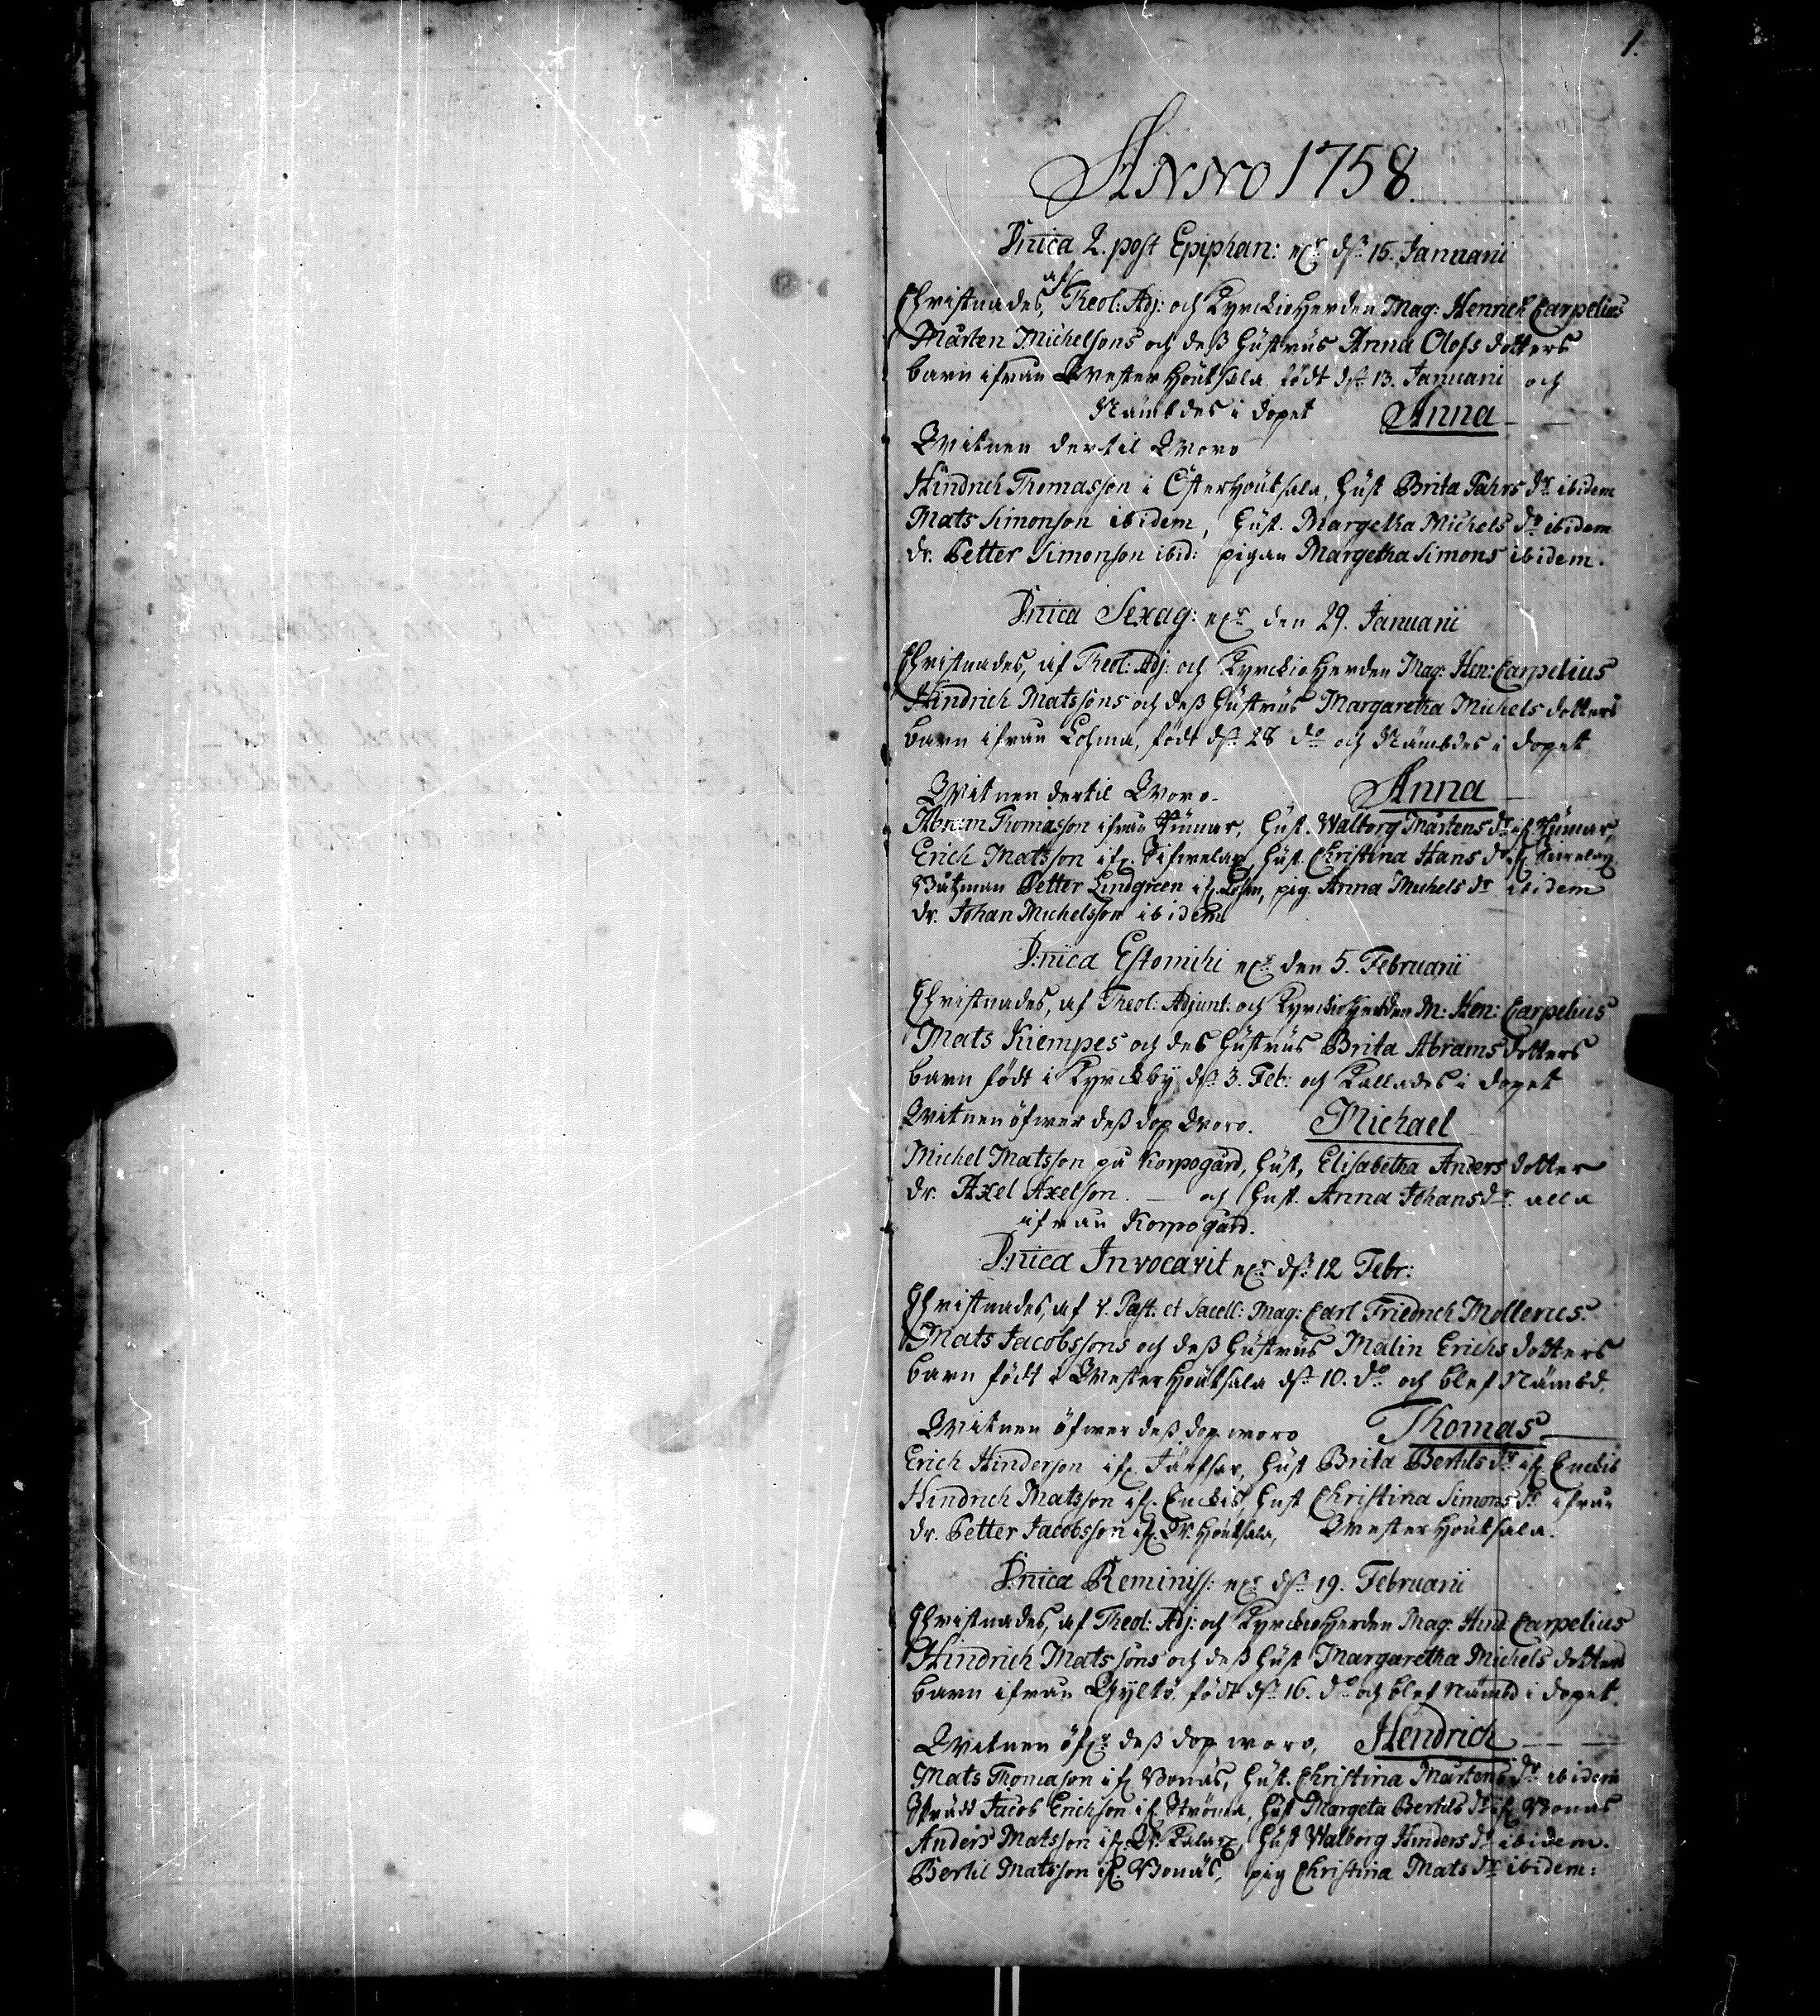 1.
Anno 1758.
Dnica 2. post Epiphan: eft. d. 15. Januarii
af
Christnades, Theol: Adj: och Kyrckioherden Mag: Henrich Carpelius
Mårten Michelsons och dess hustrus Anna Olofs dotters
barn ifrån Wester Houtsala födt d. 13. Januarii och
Nämbdes i dopet Anna
Witnen dertil Woro
Hindrich Thomasson i Österhoutsala, hust Brita Pahrs dr ibidem
Mats Simonson ibidem, hust. Margetha Michels dr ibidem
dr. Petter Simonson ibid: pigan Margetha Simons ibidem.
Dnica Sexag: eft. den 29. Januarii
Christnades, af Theol: Adj: och Kyrckioherden Mag: Hen: Carpelius
Hindrich Matssons och dess hustrus Margaretha Michels dotters
barn ifrån Lohma, födt d. 28 do och Nämbdes i dopet
Witnen dertil Woro. Anna
Abram Thomasson ifrån hust. Walborg Mårtens dr if.
Erich Matsson if. hust. Christina Hans dr if.
Båtzman Petter Lindgreen if. Lohm, pig. Anna Michels dr ibidem
dr. Johan Michelsson ibidem
D:nica Estomihi eft. den 5. Februarii
Christnades, af Theol: Adjunt: och Kyrckioherden M: Hen: Carpelius
Mats Kiempes och des hustrus Brita Abrams dotters
barn födt i Kyrckby d. 3. Feb: och Kallades i dopet
Witnen öfwer dess dop Woro. Michael
Michel Matsson på Korpogård, hust, Elisabetha Anders dotter
dr. Axel Axelson. — och hust. Anna Johans dr. alla
ifrån Korpogård.
D:nica Invocavit eft. d. 12 Febr:
Christnades, af v. Past: et Sacell: Mag: Carl Friedrich Mollerus.
Mats Jacobssons och dess hustrus Malin Erichs dotters
barn födt i Wester Houtsala d. 10. do och blef Nämbd.
Witnen öfwer dess dop woro Thomas
Erich Hinderson if. hust Brita Bertils dr if. Enckis
Hindrich Matsson if. Enckis hust Christina Simons dr ifrån
dr. Petter Jacobsson if. W. Houtsala, Wester Houtsala.
D:nica Reminiss: eft. d. 19. Februarii
Christnades, af Theol: Adj: och Kyrckioherden Mag: Hind Carpelius
Hindrich Matssons och dess hust Margaretha Michels dotters
barn ifrån Gyltö födt d. 16. do och blef nämbd i dopet.
Witnen öfr dess dop woro, Hendrich
Mats Thomason if. Bonäs, hust. Christina Mårtens dr ibidem
Jacob Erichson if. Ströma, hust Margeta Bertils dr if. Bonäs
Anders Matsson if. hust Walborg Hinders dr ibidem.
Bertil Matsson if. Bonäs, pig Christina Mats dr ibidem: